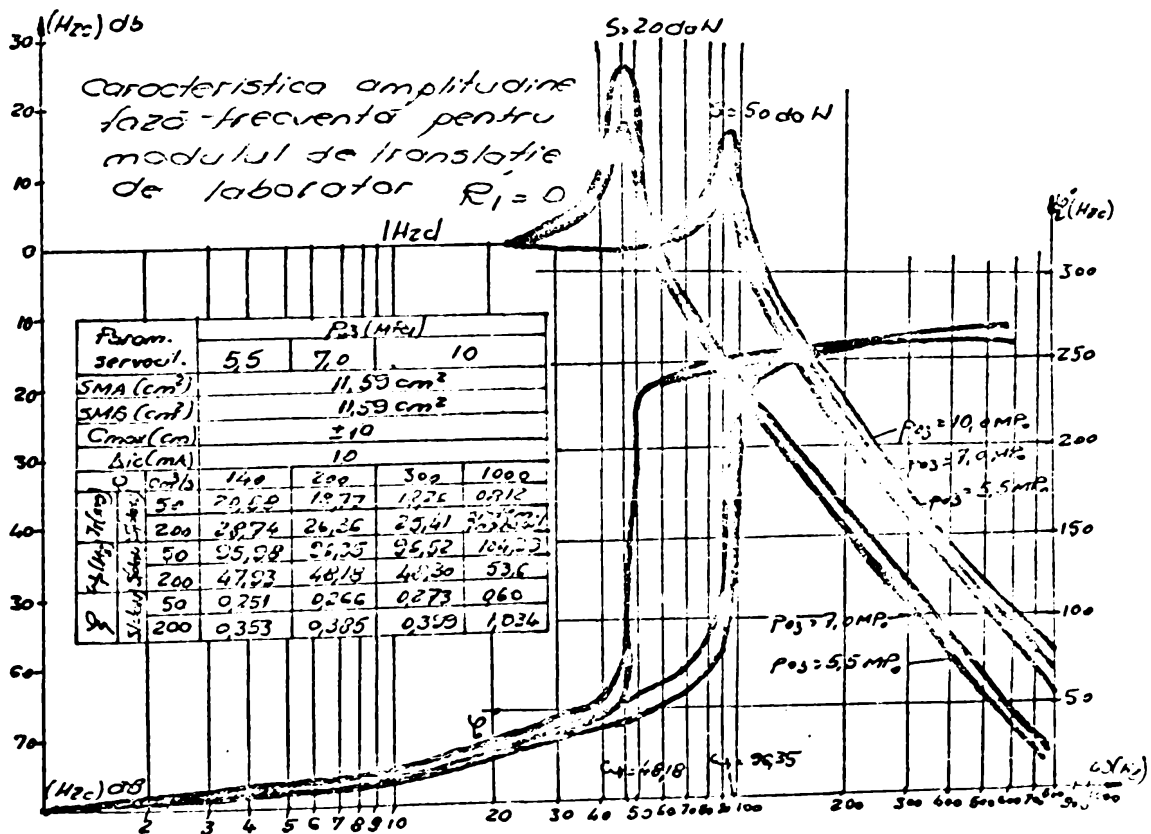 (Hzc) db
S=20daN
S=50daN
Caracteristica amplitudine
fază-frecventă pentru
modulul de translatie
de laborator R1=0
|Hzc|
φ°(Hzc)
30
20
10
0
10
20
30
40
30
60
70
300
250
200
150
100
50
Param.
servocil.
P03 (MPa)
5,5 7,0 10
SMA (cm²) 11,59 cm²
SMB (cm²) 11,59 cm²
Cmax (cm) ±10
Δic (mA) 10
C cm³/s 140 200 300 1000
50 0,912
200 28,74 26,36 25,41
50 95,98 96,35 96,52
200 47,93 48,18 48,30 53,6
50 0,251 0,266 0,273 0,60
200 0,353 0,385 0,399 1,034
P03=10,0 MPa
P03=7,0 MPa
P03=5,5 MPa
P03=7,0 MPa
P03=5,5 MPa
φ
=48,18
=96,35
(Hzc) dB
2 3 4 5 6 7 8 9 10 20 30 40 50 60 70 80 90 100 200 300 400 500 600